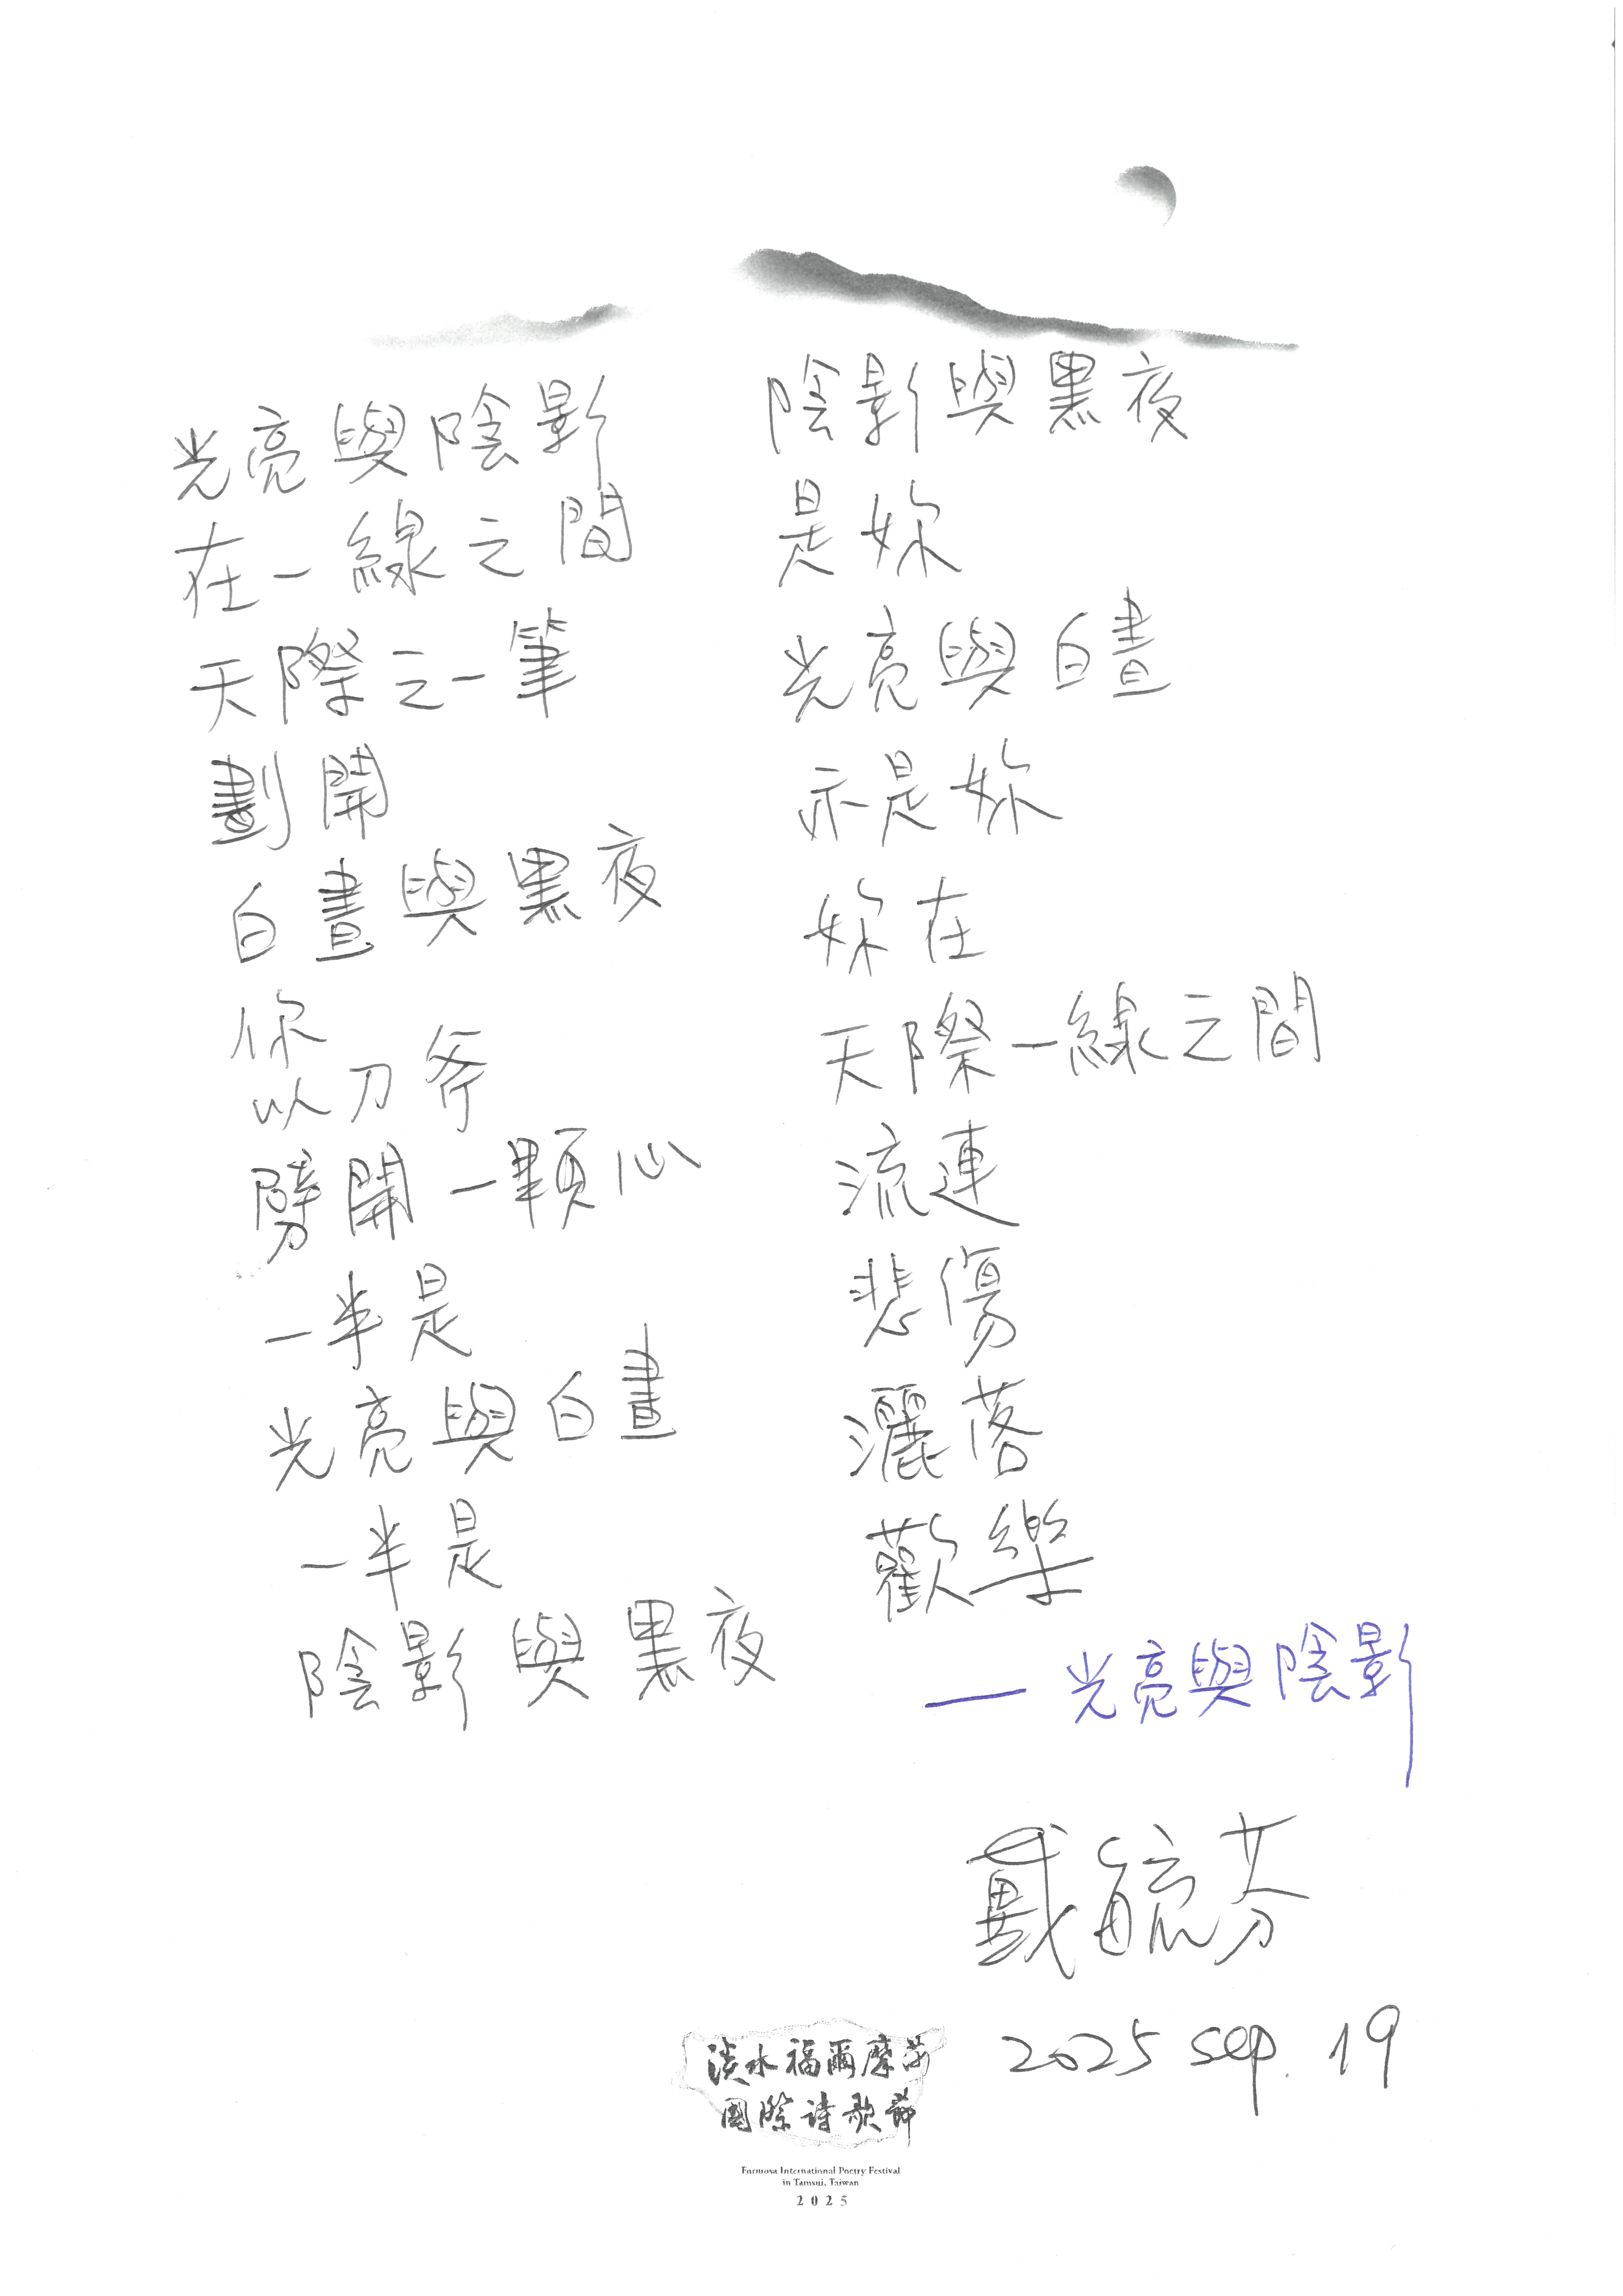 光亮與陰影
在一線之間
天際之一筆
劃開
白晝與黑夜
你
以刀斧
劈開一顆心
一半是
光亮與白晝
一半是
陰影與黑夜
陰影與黑夜
是妳
光亮與白晝
亦是妳
妳在
天際一線之間
流連
悲傷
灑落
歡樂
—光亮與陰影
戴毓芬
2025 Sep. 19
淡水福爾摩莎
國際詩歌節
Formosa International Poetry Festival
in Tamsui, Taiwan
2025